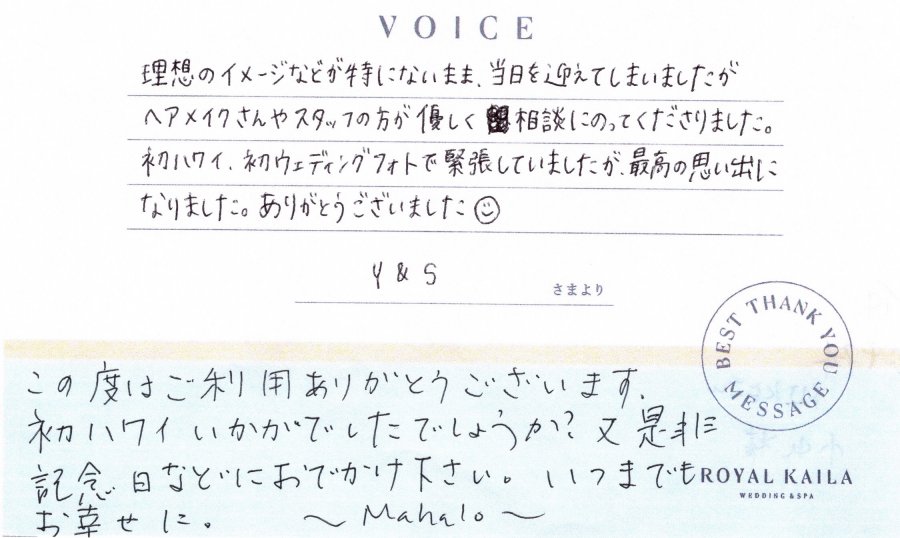 VOICE
理想のイメージなどが特にないまま、当日を迎えてしまいましたが
ヘアメイクさんやスタッフの方が優しく相談にのってくださりました。
初ハワイ、初ウェディングフォトで緊張していましたが、最高の思い出に
なりました。ありがとうございました
Y & S
さまより
BEST THANK YOU MESSAGE
この度はご利用ありがとうございます.
初ハワイいかがでしたでしょうか?又是非
記念日などにおでかけ下さい。いつまでも
お幸せに。 〜Mahalo〜
ROYAL KAILA
WEDDING & SPA